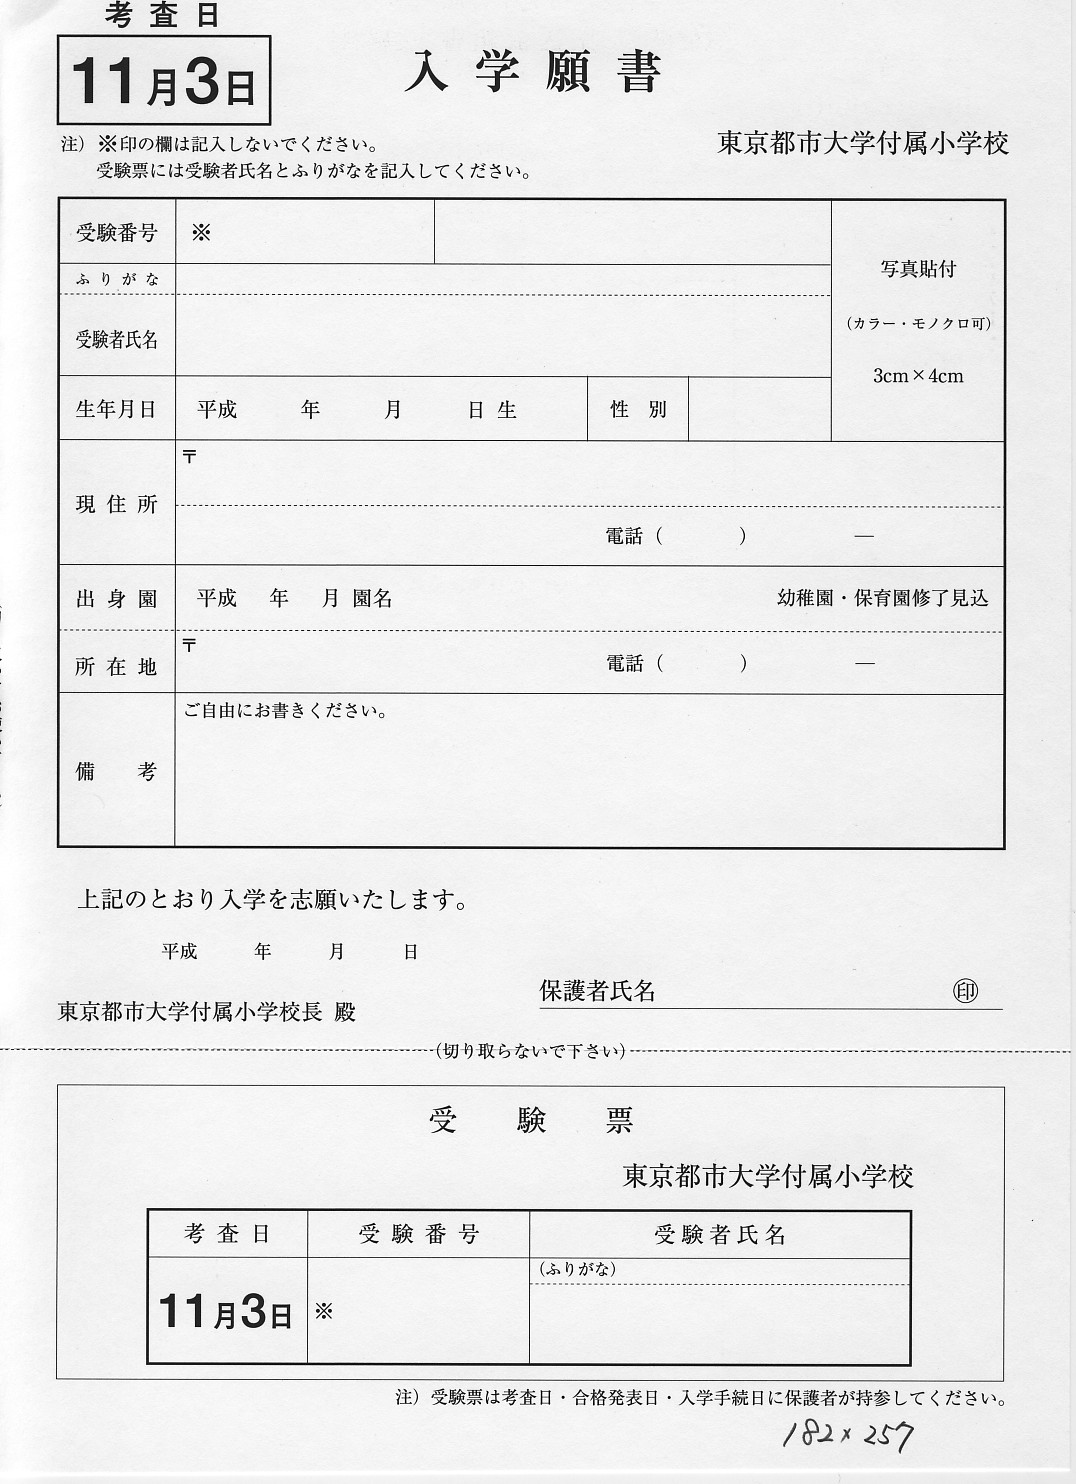 考査日
11月3日
入学願書
注）※印の欄は記入しないでください。
受験票には受験者氏名とふりがなを記入してください。
東京都市大学付属小学校
受験番号 ※
ふりがな
受験者氏名
写真貼付
（カラー・モノクロ可）
3cm×4cm
生年月日 平成 年 月 日生 性別
現住所 〒
電話（ ） ―
出身園 平成 年 月 園名 幼稚園・保育園修了見込
所在地 〒 電話（ ） ―
備考 ご自由にお書きください。
上記のとおり入学を志願いたします。
平成 年 月 日
保護者氏名 ㊞
東京都市大学付属小学校長 殿
（切り取らないで下さい）
受験票
東京都市大学付属小学校
考査日 受験番号 受験者氏名
（ふりがな）
11月3日 ※
注）受験票は考査日・合格発表日・入学手続日に保護者が持参してください。
182×257